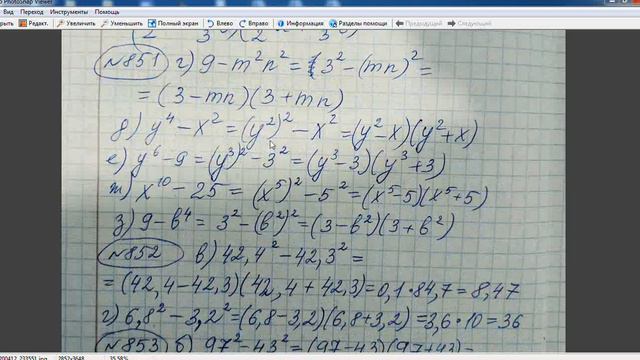 o PhotoSnap Viewer
Вид Переход Инструменты Помощь
Увеличить Уменьшить Полный экран Влево Вправо Информация Разделы помощи Предыдущий Следующий
№851 г) 9 - m²n² = 3² - (mn)² =
= (3 - mn)(3 + mn)
д) y⁴ - x² = (y²)² - x² = (y² - x)(y² + x)
е) y⁶ - 9 = (y³)² - 3² = (y³ - 3)(y³ + 3)
ж) x¹⁰ - 25 = (x⁵)² - 5² = (x⁵ - 5)(x⁵ + 5)
з) 9 - b⁴ = 3² - (b²)² = (3 - b²)(3 + b²)
№852 в) 42,4² - 42,3² =
= (42,4 - 42,3)(42,4 + 42,3) = 0,1 · 84,7 = 8,47
г) 6,8² - 3,2² = (6,8 - 3,2)(6,8 + 3,2) = 3,6 · 10 = 36
№853 б) 97² - 43² = (97 - 43)(97 + 43) =
200412_233551.jpg 2852x3648 35.58%